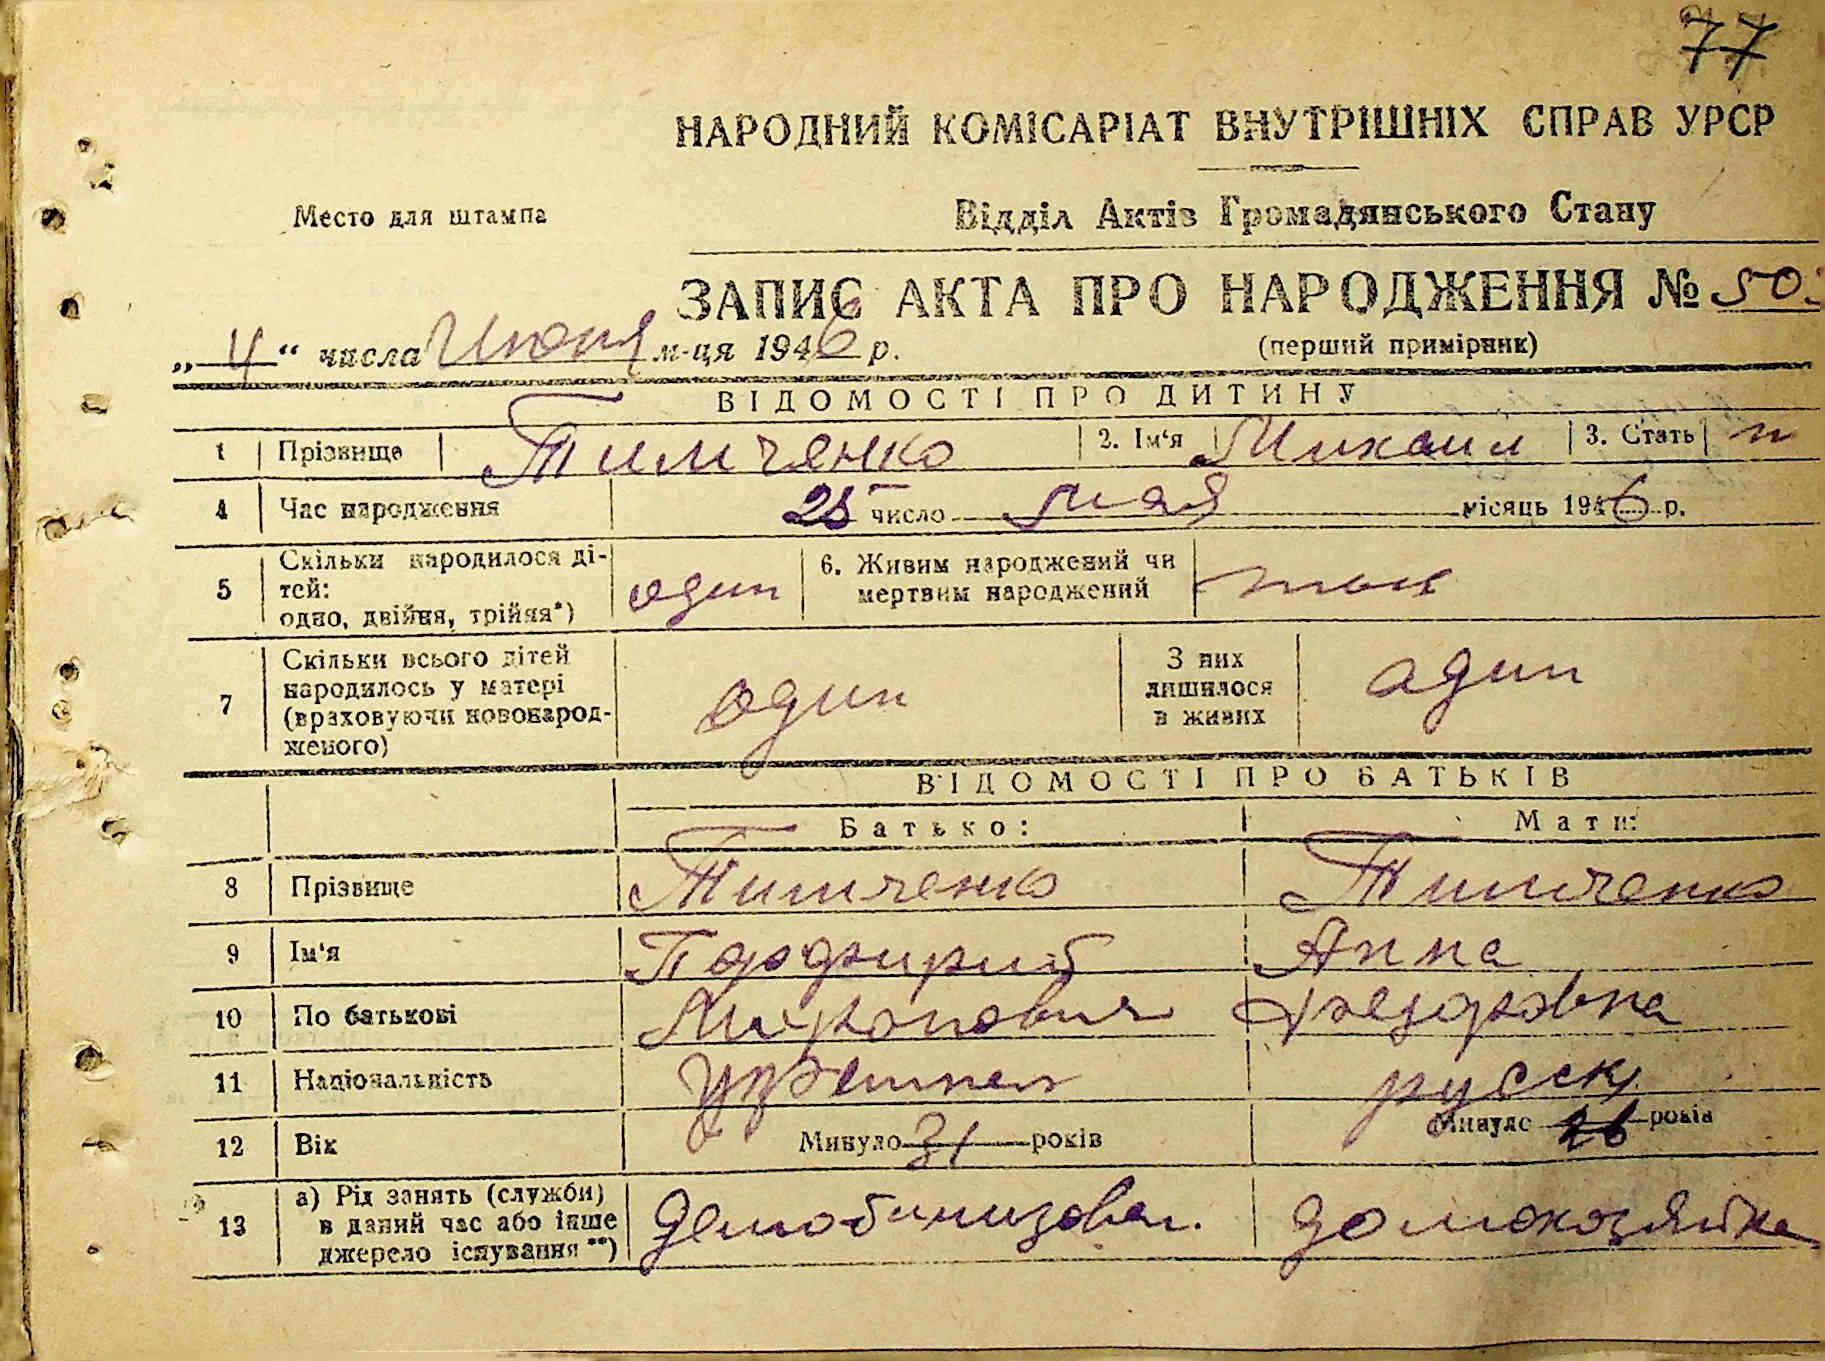 77
НАРОДНИЙ КОМІСАРІАТ ВНУТРІШНІХ СПРАВ УРСР
Место для штампа
Відділ Актів Громадянського Стану
ЗАПИС АКТА ПРО НАРОДЖЕННЯ № 50
„4“ числа Июня м-ця 1946 р.
(перший примірник)
ВІДОМОСТІ ПРО ДИТИНУ
1 Прізвище Тимчянко 2. Ім'я Михаил 3. Стать м
4 Час народження 25 число мая місяць 1946 р.
5 Скільки народилося ді-
тей:
одно, двійня, трійня*) один
6. Живим народжений чи
мертвим народжений
7 Скільки всього дітей
народилось у матері
(враховуючи новонарод-
женого) один
З них
лишилося
в живих адин
ВІДОМОСТІ ПРО БАТЬКІВ
Батько: Мати:
8 Прізвище Тимченко Тимченко
9 Ім'я Порфирий Анна
10 По батькові Миронович Федоровна
11 Національність украинец русск
12 Вік Минуло 31 років Минуло 26 років
13 а) Рід занять (служби)
в даний час або інше
джерело існування **) демобилизован. домохозяйка